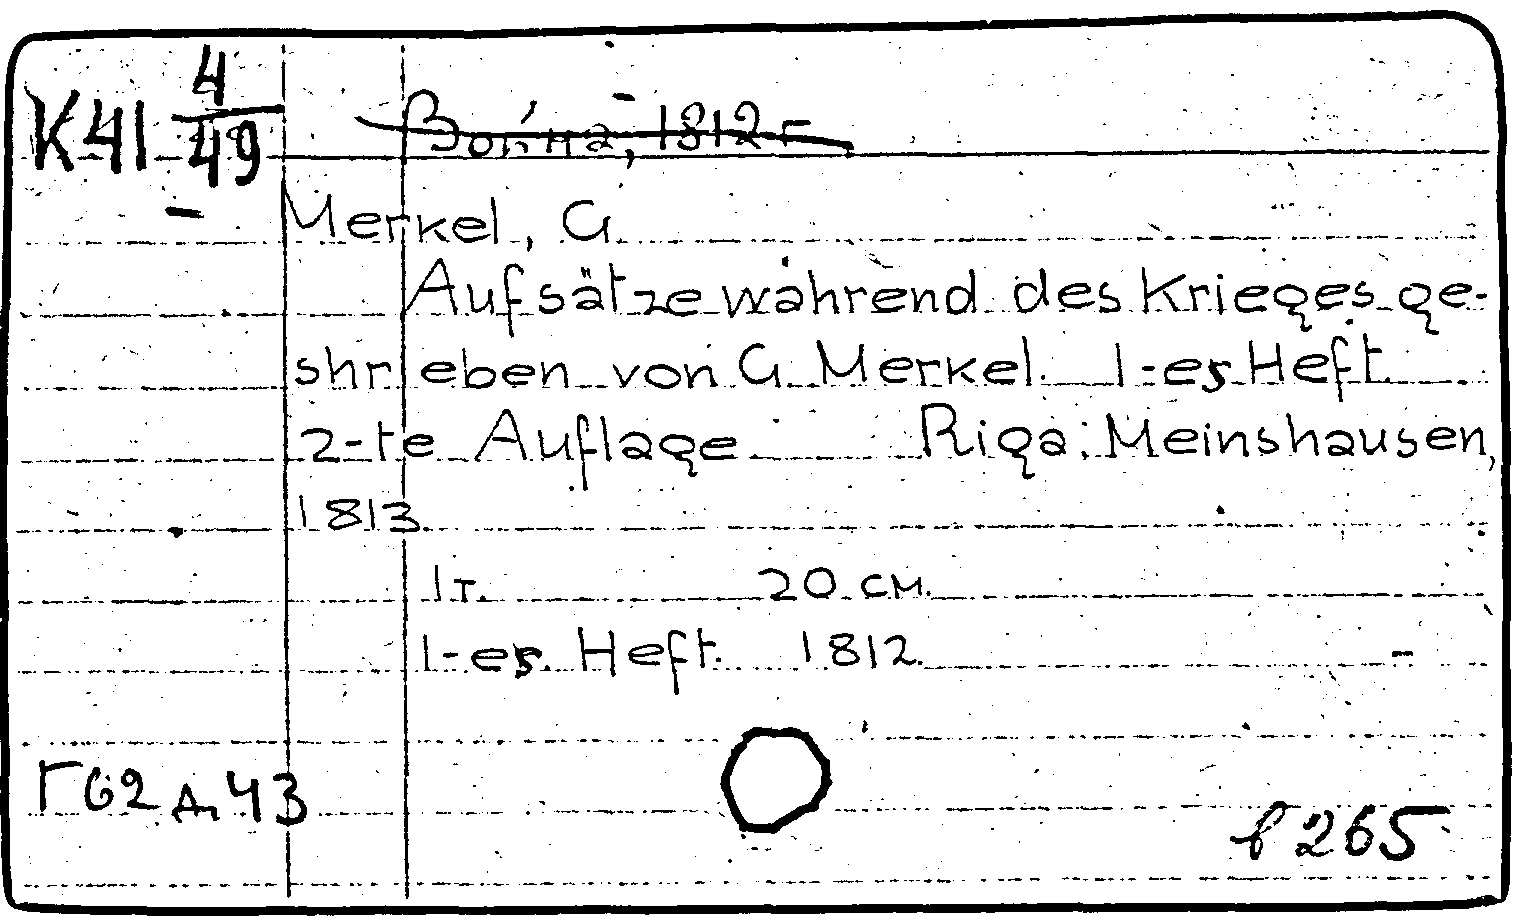 К41 4/49
Война, 1812 г
Merkel, G.
Aufsätze während des Krieges ge-
shrieben von G. Merkel. 1-es Heft.
2-te Auflage Riga: Meinshausen,
1813.
1 т. 20 см.
1-es. Heft. 1812.
Г62 д.43
в 265